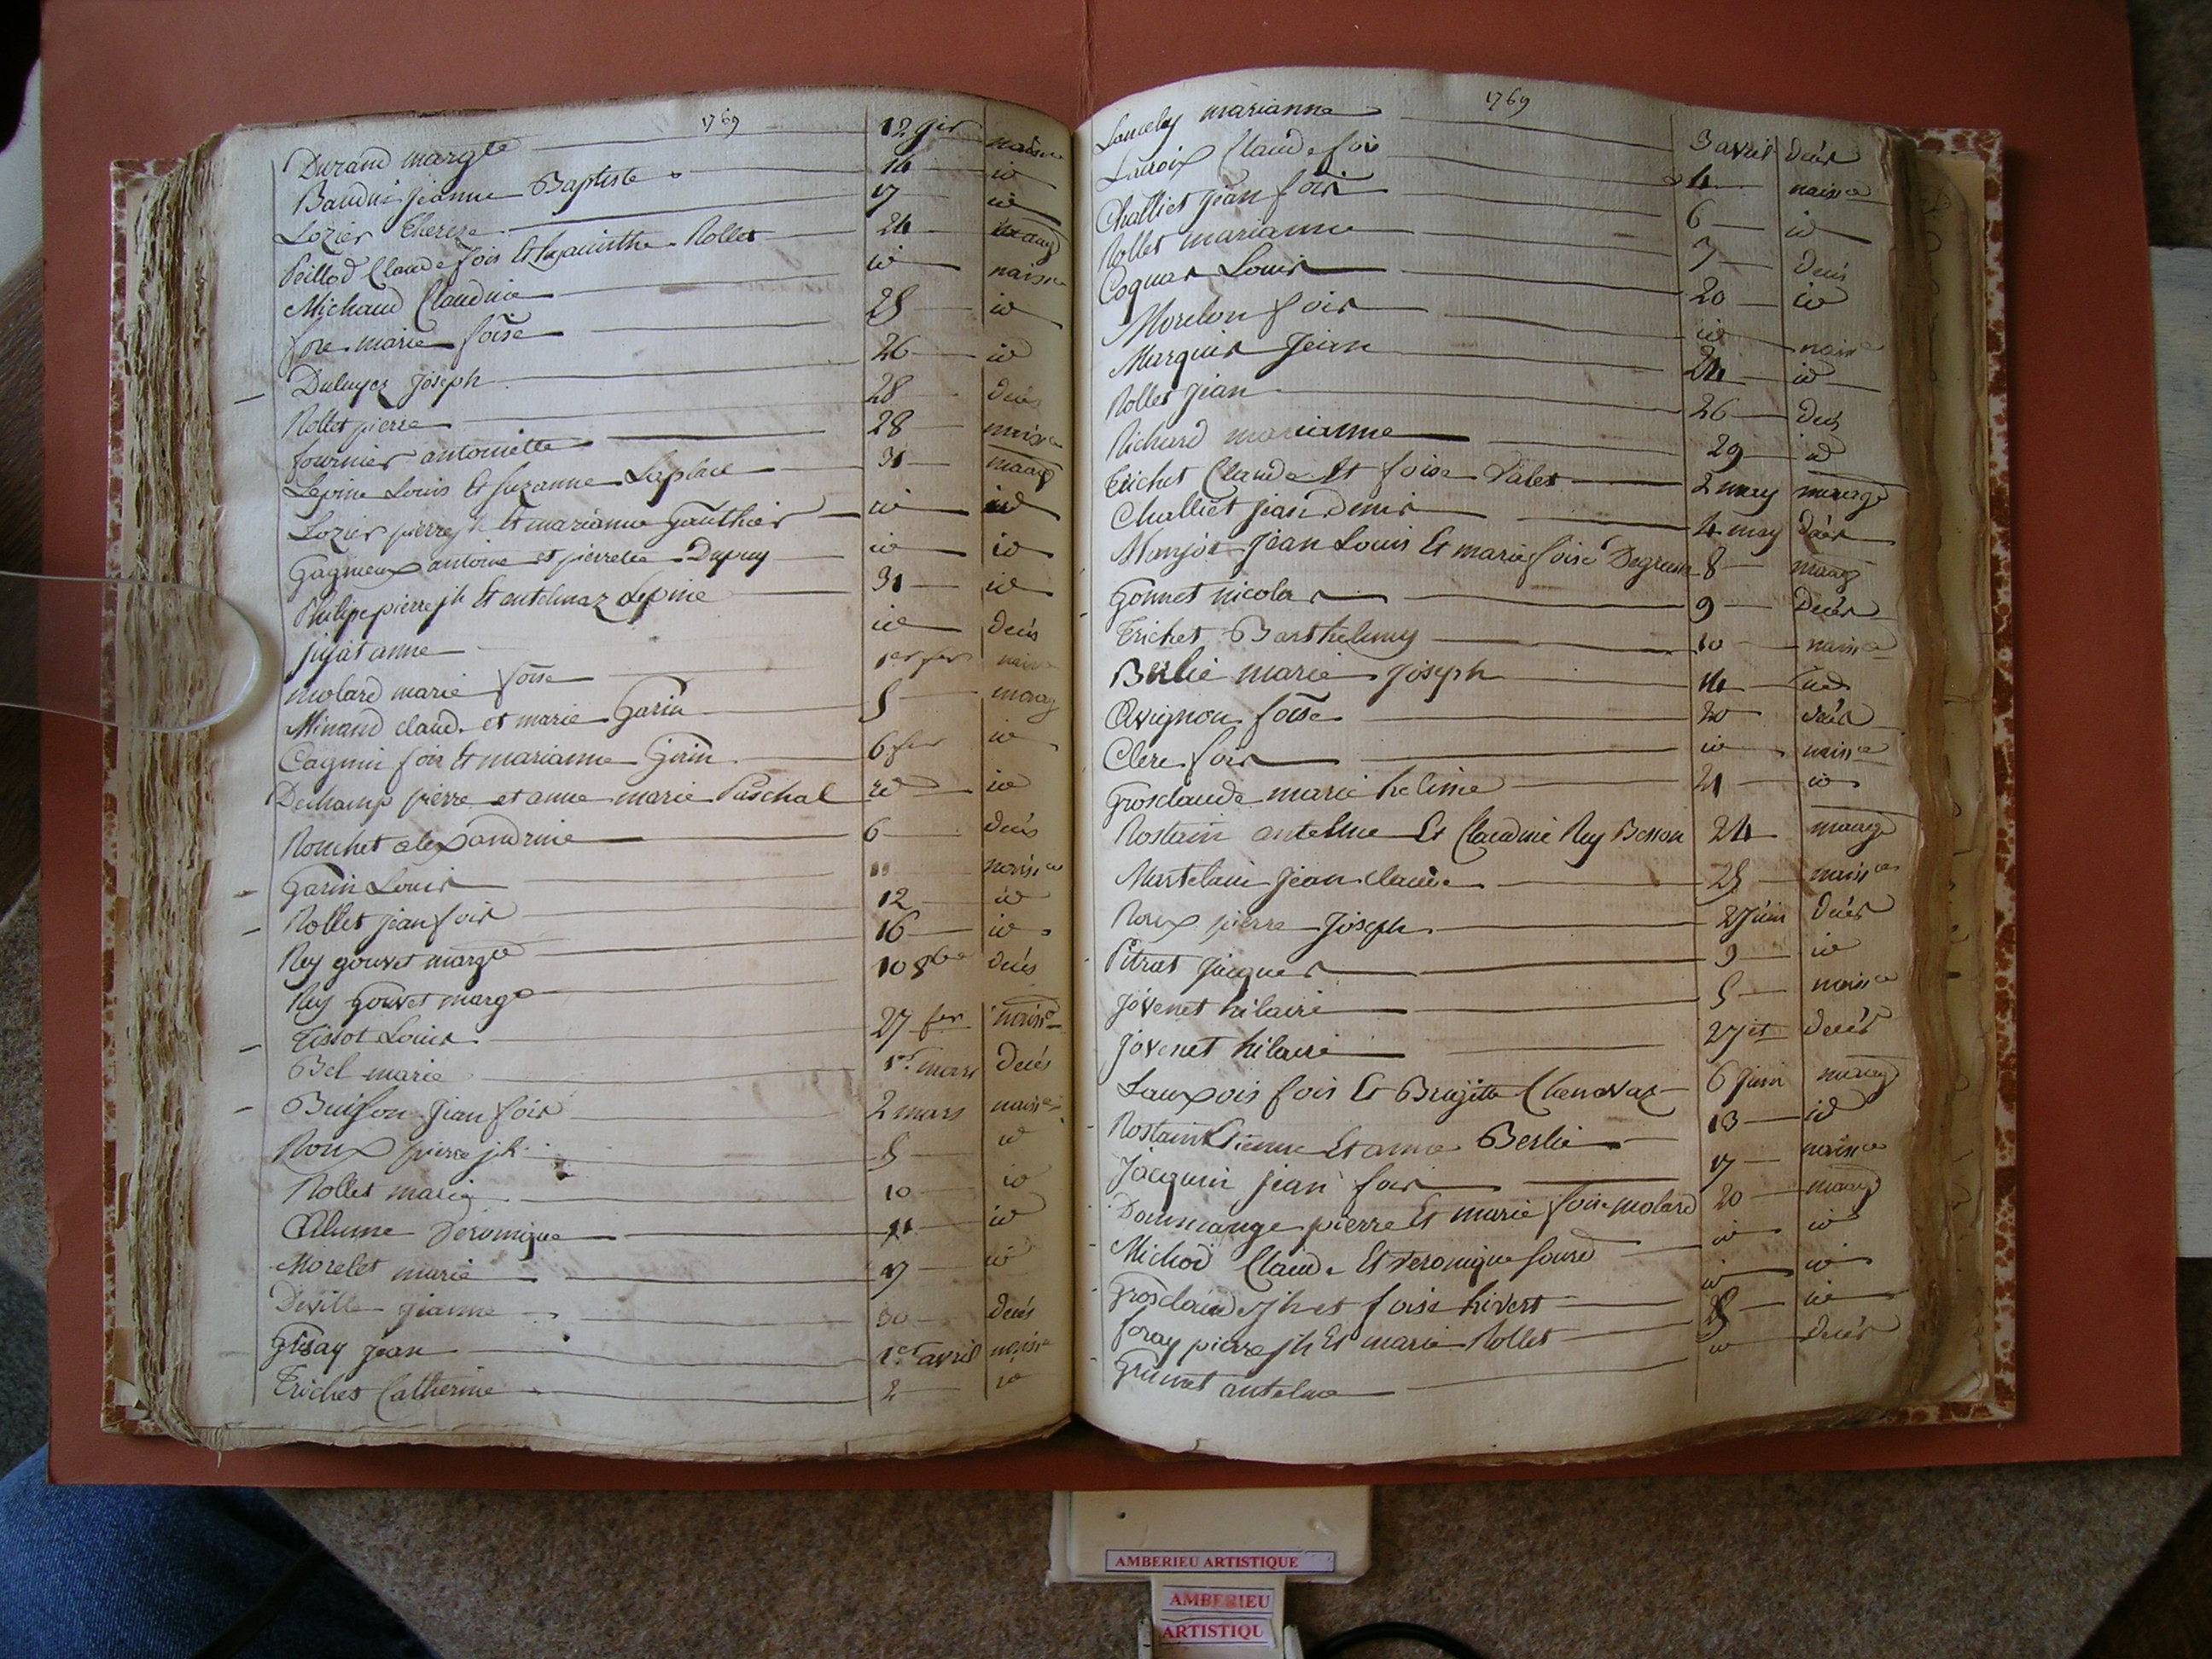 1769
Durand margte 12 janr naisce
Baudin jeanne Baptiste 14 id
Lozier Therese 17 id
Peillod Claude fois Et hyacinthe Rollet 24 mariag
Michaud Claudine id naisce
fore marie foise 25 id
Joseph 26 id
Rollet pierre 28 décés
fournier antoinette 28 naisce
Lepine Louis Et suzanne Laplace 31 mariag
Lozier pierre jh Et marianne Gauthier id id
Gagneux antoine et pierrette Dupuy id id
Philipe pierre jh Et antelmaz Lepine 31 id
jujat anne id décés
molard marie foise 1er fer naisce
Minand claude et marie Garin 5 mariag
Cagnin fois Et marianne Girin 6 fer id
Dechamp pierre et anne marie Paschal id id
Ronchet alexandrine 6 décés
Garin Louis 11 naisce
Rollet jean fois 12 id
Rey gouvet margte 16 id
Rey gouvet margte 10 8bre décés
Tissot Louis 27 fer naisce
Bel marie 1er mars décés
Buisson jean fois 2 mars naisce
Roux pierre jh 5 id
Rollet marie 10 id
Allume Veronique 11 id
Morelet marie 17 id
Deville jeanne 30 décés
Grisay jean 1er avril naisce
Trichet Catherine 2 id
1769
Lancely marianne 3 avril décés
Lacroix Claude fois 4 naisce
Challiet jean fois 6 id
Rollet marianne 7 décés
Coquar Louis 20 id
Morelon fois id naisce
Marquis Jean 24 id
Rollet jean 26 décés
Richard marianne 29 id
Trichet Claude Et foise Valet 2 may mariage
Challiet jean Denis 4 may décés
Monjot jean Louis Et marie foise 8 mariag
Gonnet nicolas 9 Décés
Trichet Barthelemy 10 naisce
Berlie marie Joseph 14 id
Avignon foise 20 décés
Clere fois id naisce
Grosclaude marie heline 21 id
Rostain antelme Et Claudine Rey Besson 24 mariage
Martelain jean claude 25 naisce
Roux pierre Joseph 2 juin décés
Pitrat jacques 3 id
jovenet hilaire 5 naisce
jovenet hilaire 27 jet décés
Lauxois fois Et Brigitte Chenavaz 6 juin mariag
Rostain Etienne Et anne Berlie 13 id
Jacquin jean fois 17 naisce
Dommange pierre Et marie foise molard 20 mariag
Michod Claude Et Veronique id id
Grosclaude jh et foise hivert id id
foray pierre jh Et marie Rollet 25 id
Grumet antelme id décés
AMBERIEU ARTISTIQUE
AMBERIEU
ARTISTIQU